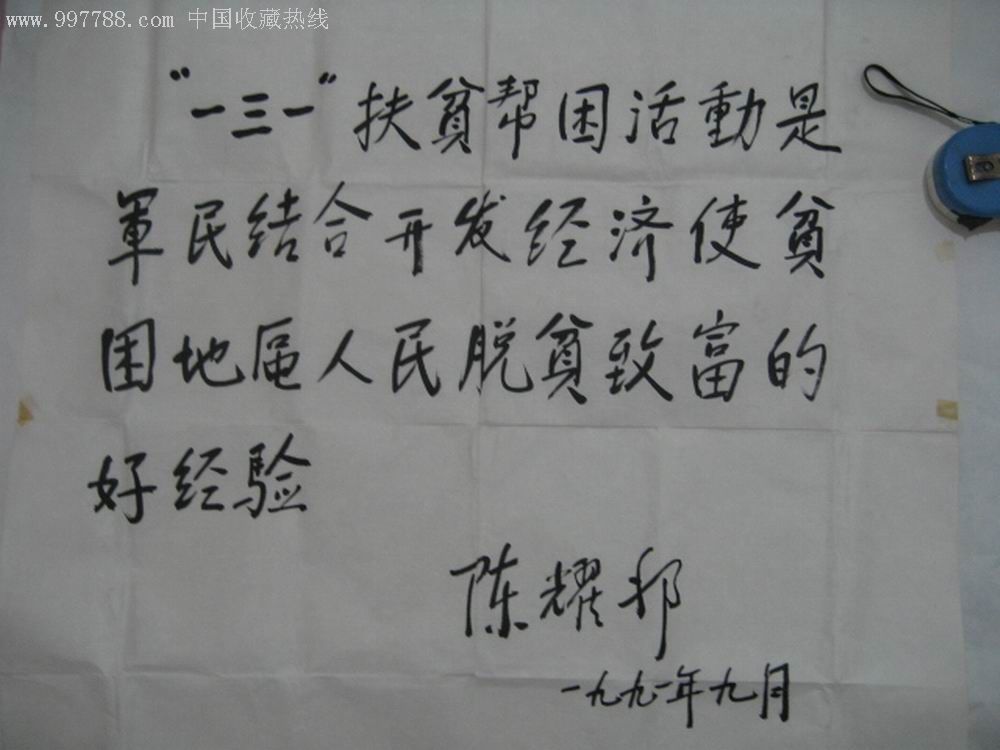 www.997788.com 中国收藏热线
“一三一”扶貧帮困活動是
軍民结合开发经济使貧
困地區人民脱貧致富的
好经验
陈耀邦
一九九一年九月